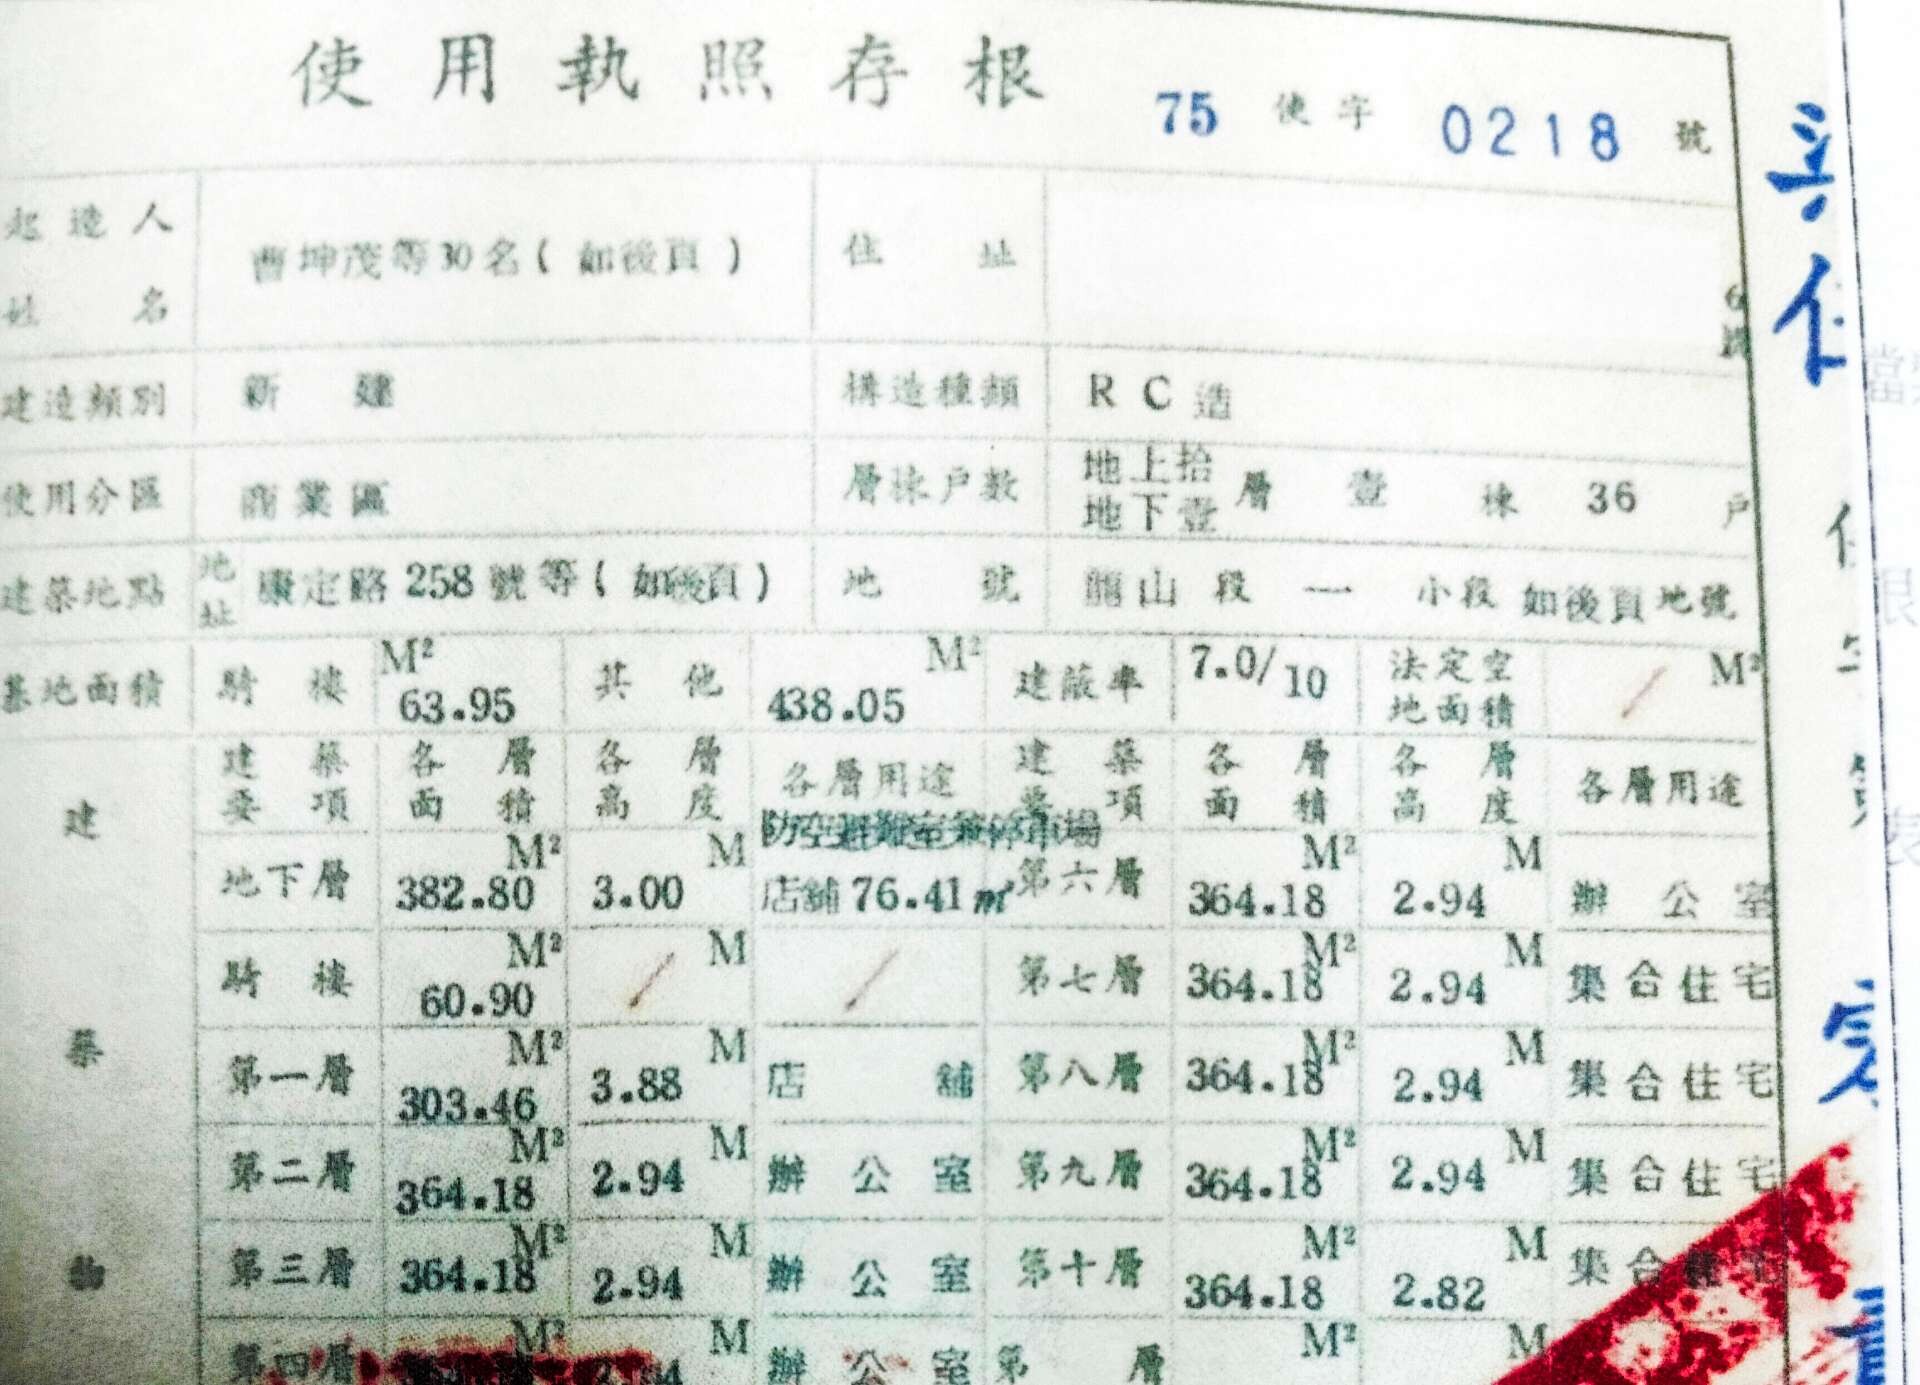 使用執照存根 75 使字 0218 號
起造人姓名 曹坤茂等30名(如後頁) 住址
建造類別 新建 構造種類 RC造
使用分區 商業區 層棟戶數 地上拾地下壹層 壹 棟 36 戶
建築地點 地址 康定路258號等(如後頁) 地號 龍山段一小段如後頁地號
基地面積 騎樓 M² 63.95 其他 M² 438.05 建蔽率 7.0/10 法定空地面積 / M²
建築要項 各層面積 各層高度 各層用途 建築要項 各層面積 各層高度 各層用途
防空避難室兼停車場
地下層 M² 382.80 M 3.00 店舖76.41㎡ 第六層 M² 364.18 M 2.94 辦公室
騎樓 M² 60.90 / M / 第七層 M² 364.18 M 2.94 集合住宅
第一層 M² 303.46 M 3.88 店舖 第八層 M² 364.18 M 2.94 集合住宅
第二層 M² 364.18 M 2.94 辦公室 第九層 M² 364.18 M 2.94 集合住宅
第三層 M² 364.18 M 2.94 辦公室 第十層 M² 364.18 M 2.82 集合住宅
第四層 M² M 辦公室 第 層 M² M
建築物